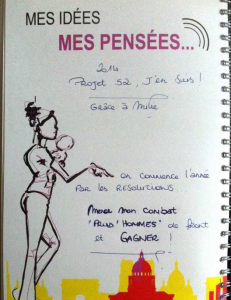 MES IDÉES
MES PENSÉES...
2014
Projet 52, J'en suis !
Grâce à Milie
on commence l'année
PAR LES RESOLUTIONS
Mener mon combat
"PRUD'HOMMES" de front
et GAGNER !